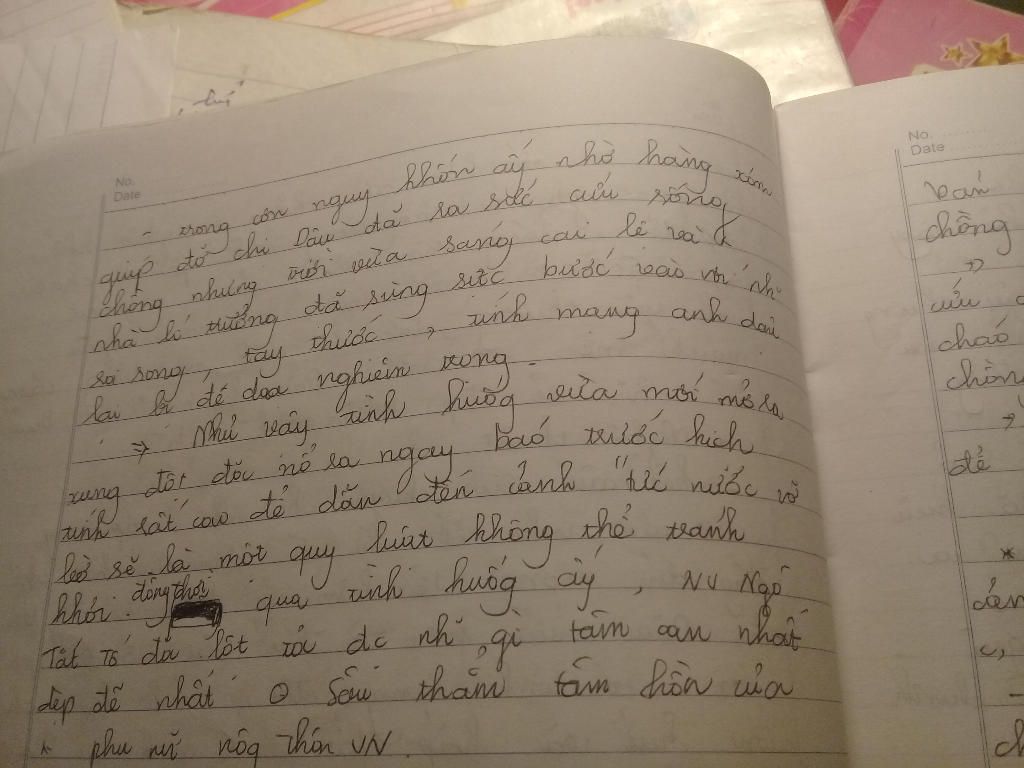 No.
Date
- trong cơn nguy khốn ấy nhờ hàng xóm
giúp đỡ chị Dậu đã ra sức cứu sống
chồng nhưng vừa sang cai lệ và
nhà lí trưởng đã sừng sức bước vào
roi song, tay thước, tính mang anh dậu
lại bị đe doạ nghiêm trọng.
⇒ Như vậy tình huống vừa mới mở ra,
xung đột đã nổ ra ngay báo trước kịch
tính rất cao để dẫn đến cảnh "tức nước vỡ
bờ sẽ là một quy luật không thể tránh
khỏi. đồng thời qua tình huống ấy, NV Ngô
Tất Tố đã lột tả đc nh gì tâm can nhất
đẹp đẽ nhất ở sâu thẳm tâm hồn của
phụ nữ nôg thôn VN.
No.
Date
chồng
cứu
cháo
để